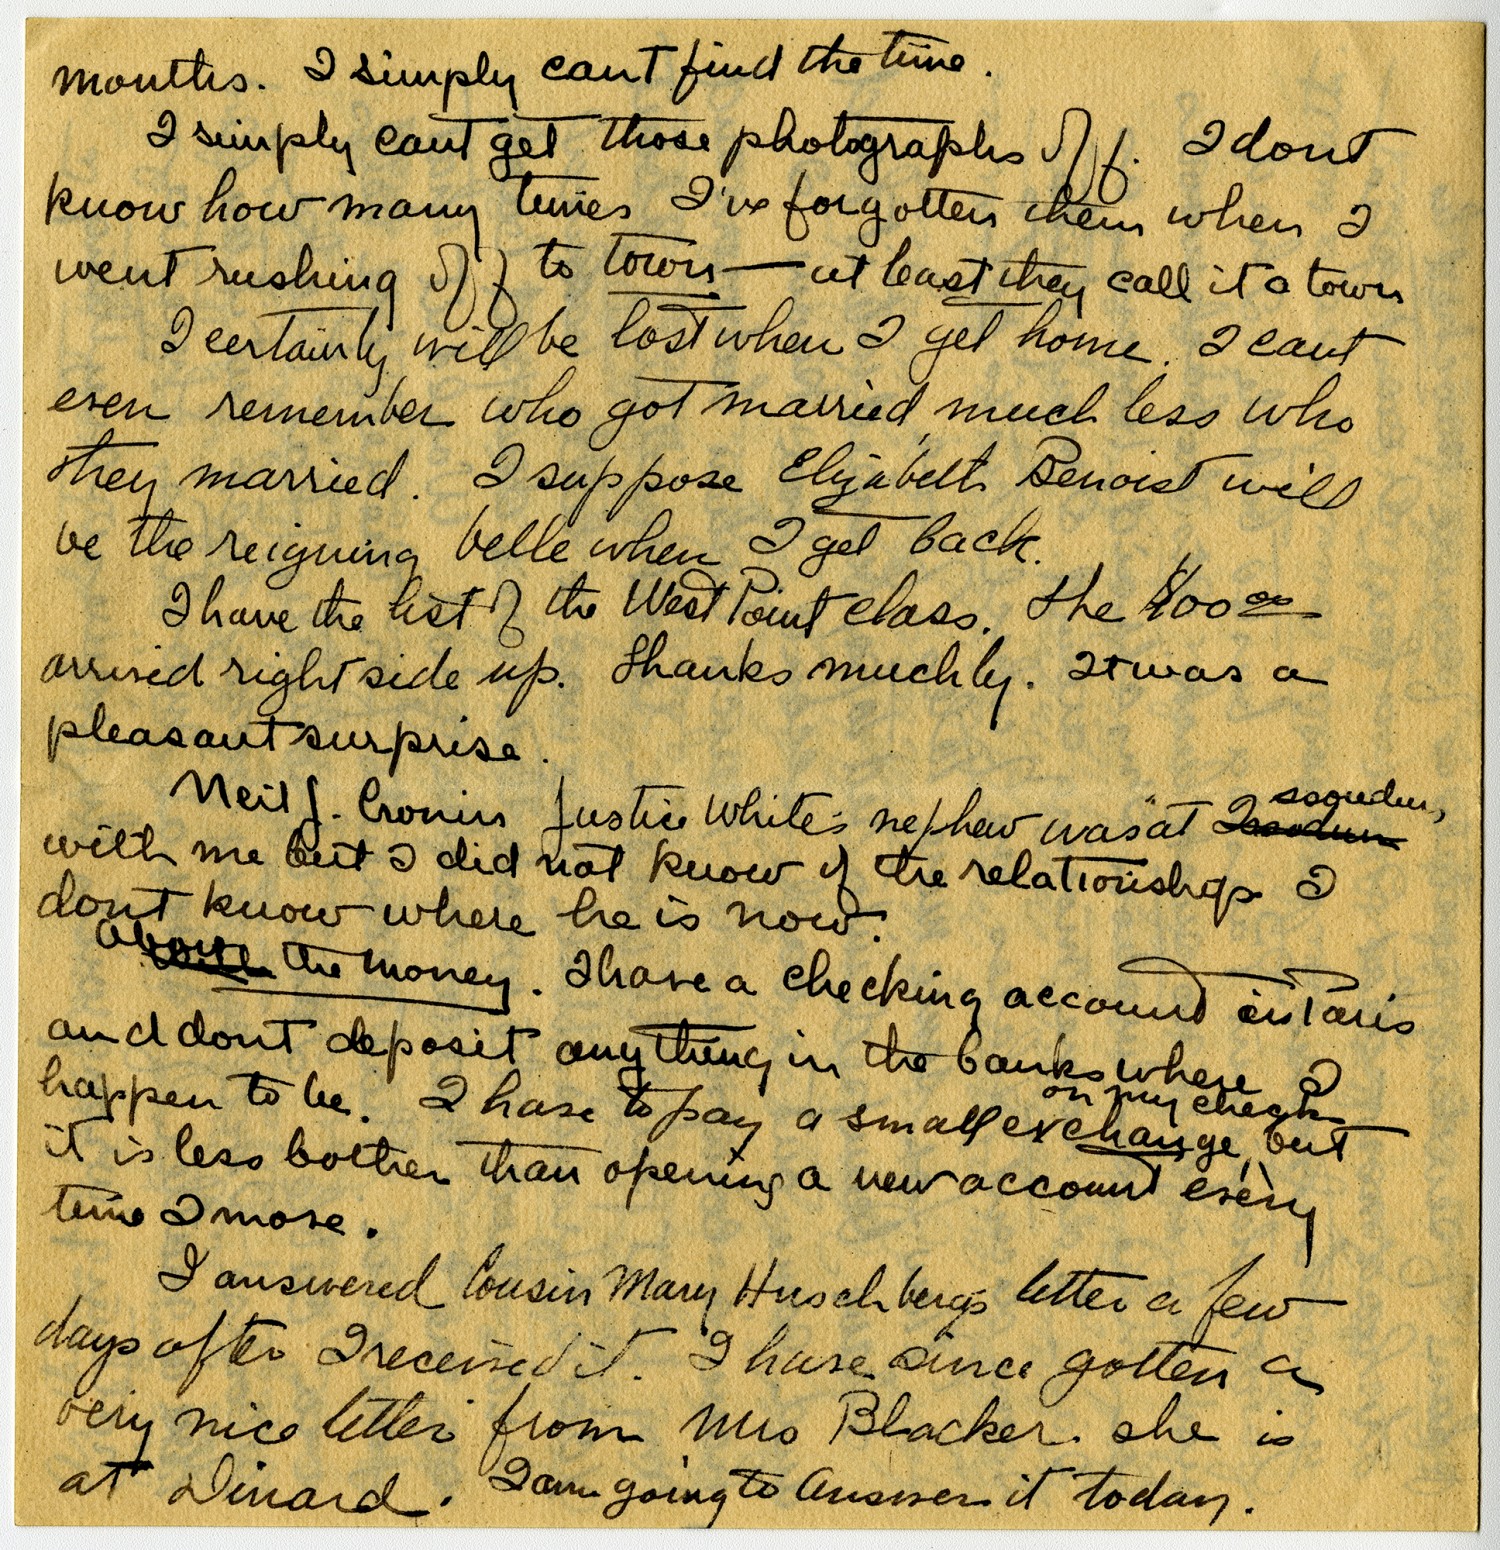 months. I simply cant find the time.
I simply cant get those photographs off. I dont
know how many times I've forgotten them when I
went rushing off to town — at least they call it a town
I certainly will be lost when I get home. I cant
even remember who got married, much less who
they married. I suppose Elizabeth Benoist will
be the reigning belle when I get back.
I have the list of the West Point class. The $100.00
arrived right side up. Thanks muchly. It was a
pleasant surprise.
Neil J. Cronin Justice White's nephew was at Issoudun,
with me but I did not know of the relationship. I
dont know where he is now.
About the money. I have a checking account in Paris
and dont deposit anything in the banks where I
happen to be. I have to pay a small exchange on my checks, but
it is less bother than opening a new account every
time I move.
I answered Cousin Mary Huschbergs letter a few
days after I received it. I have since gotten a
very nice letter from Mrs Blacker. She is
at Dinard. I am going to answer it today.